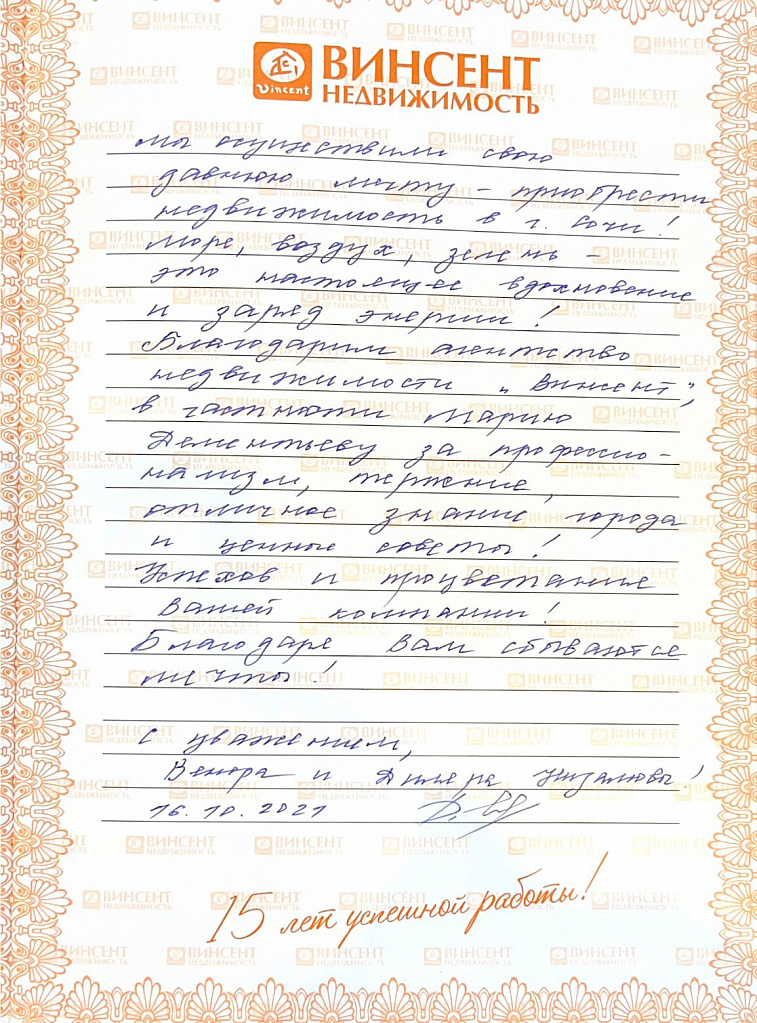 ВИНСЕНТ
НЕДВИЖИМОСТЬ
Vincent
Мы осуществили свою
давнюю мечту - приобрести
недвижимость в г. Сочи!
Море, воздух, зелень -
это настоящее вдохновение
и заряд энергии!
Благодарим агентство
недвижимости "Винсент",
в частности Марию
Дементьеву за профессио-
нализм, терпение,
отличное знание города
и ценные советы!
Успехов и процветания
Вашей компании!
Благодаря Вам сбываются
мечты!
С уважением,
Венера и Динера
16.10.2021
15 лет успешной работы!